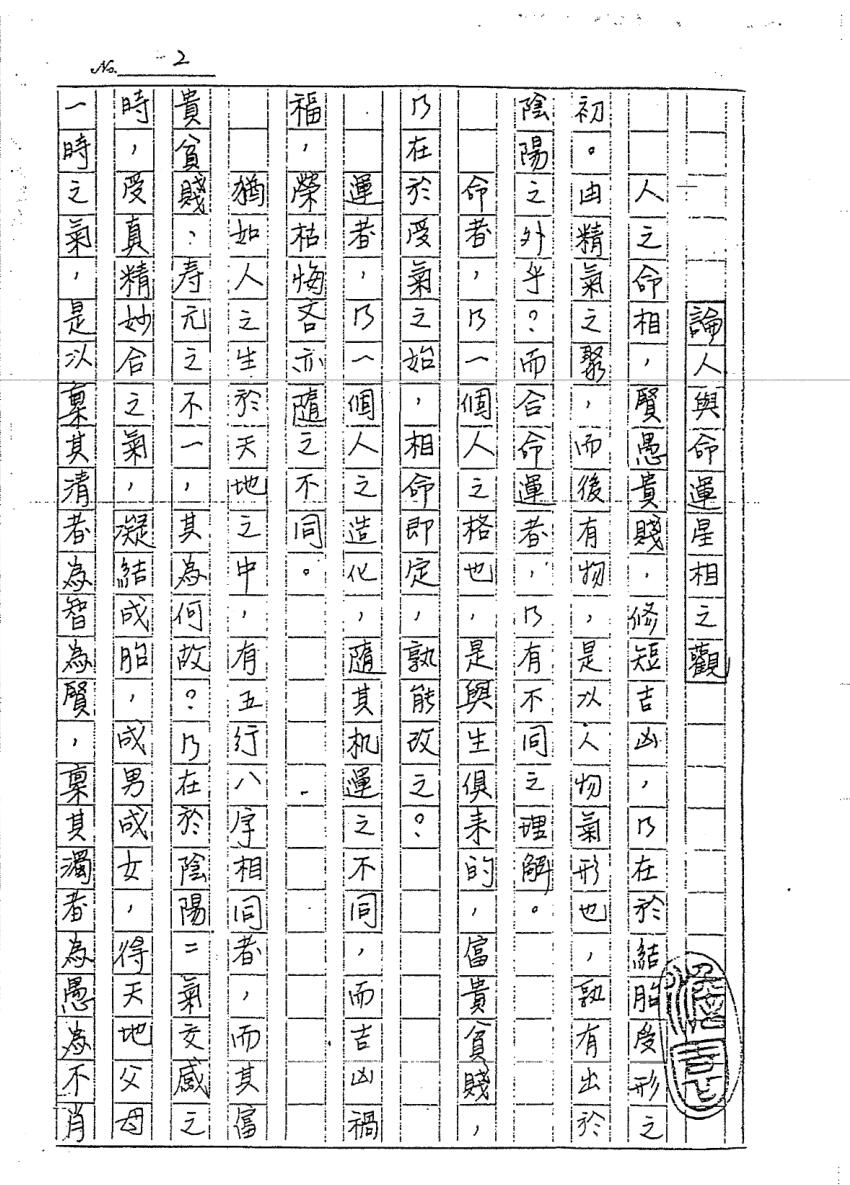 No. 2
論人與命運星相之觀
人之命相，賢愚貴賤，修短吉凶，乃在於結胎受形之
初。由精氣之聚，而後有物，是以人物氣形也，孰有出於
陰陽之外乎？而合命運者，乃有不同之理解。
命者，乃一個人之格也，是與生俱来的，富貴貧賤，
乃在於受氣之始，相命即定，孰能改之？
運者，乃一個人之造化，隨其机運之不同，而吉凶禍
福，榮枯悔吝亦隨之不同。
猶如人之生於天地之中，有五行八字相同者，而其富
貴貧賤、寿元之不一，其為何故？乃在於陰陽二氣交感之
時，受真精妙合之氣，凝結成胎，成男成女，得天地父母
一時之氣，是以稟其清者為智為賢，稟其濁者為愚為不肖